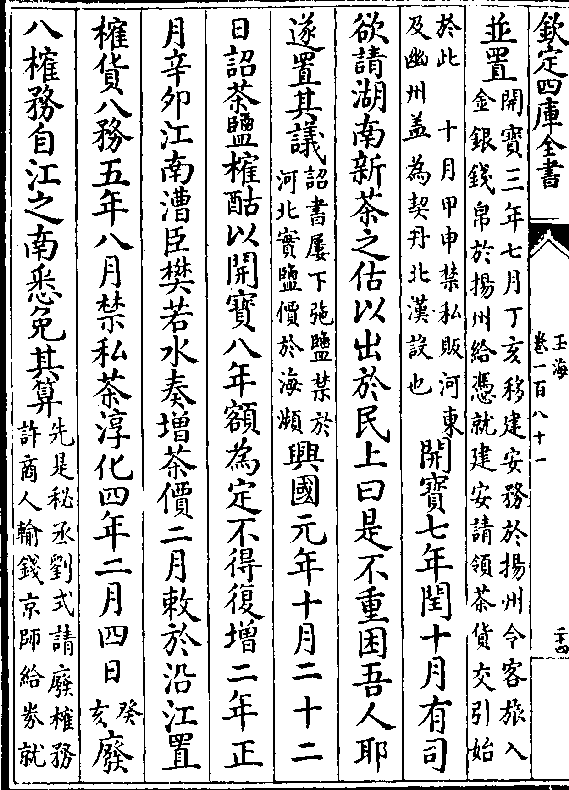 欽定四庫全書
玉海
卷一百八十一
二十四
並置開寶三年七月丁亥移建安務於揚州令客旅入金銀錢帛於揚州給憑就建安請領茶貨交引始
於此 十月甲申禁私販河東及幽州盖為契丹北漢設也開寶七年閏十月有司
欲請湖南新茶之估以出於民上曰是不重困吾人耶
遂置其議詔書屢下弛鹽禁於河北實鹽價於海瀕興國元年十月二十二
日詔茶鹽榷酤以開寶八年額為定不得復增二年正
月辛卯江南漕臣樊若水奏增茶價二月敕於沿江置
榷貨八務五年八月禁私茶淳化四年二月四日癸亥廢
八榷務自江之南悉免其算先是秘丞劉式請廢榷務許商人輸錢京師給券就